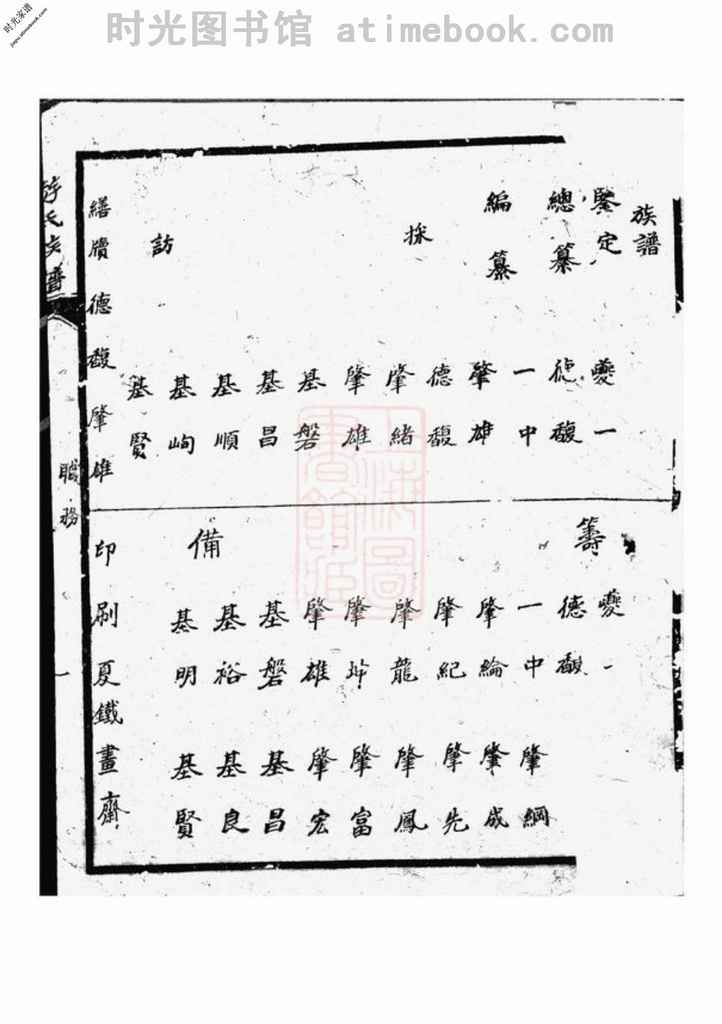 时光图书馆 atimebook.com
时光家谱
族譜
鑒定 夔一
總纂 德馥
編纂 一中
肇雄
德馥
採 肇緒
肇雄
基磐
基昌
基順
訪 基峋
基賢
繕牘 德馥 肇雄
籌 夔一
德馥
一中 肇綱
肇綸 肇成
肇紀 肇先
肇龍 肇鳳
肇富
肇雄 肇宏
基磐 基昌
備 基裕 基良
基明 基賢
印刷 夏鐵畫齋
氏族譜 職務 一
上海圖書館藏